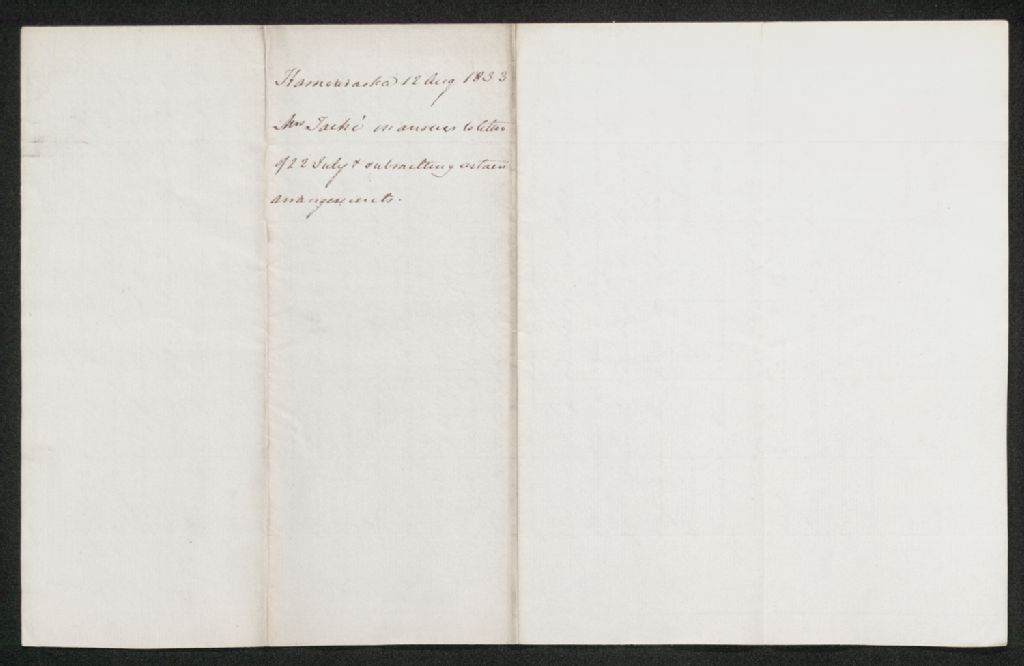 Kamouraska 12 Aug 1833
Mr Taché in answer to letter
of 22 July & submitting certain
arrangements.